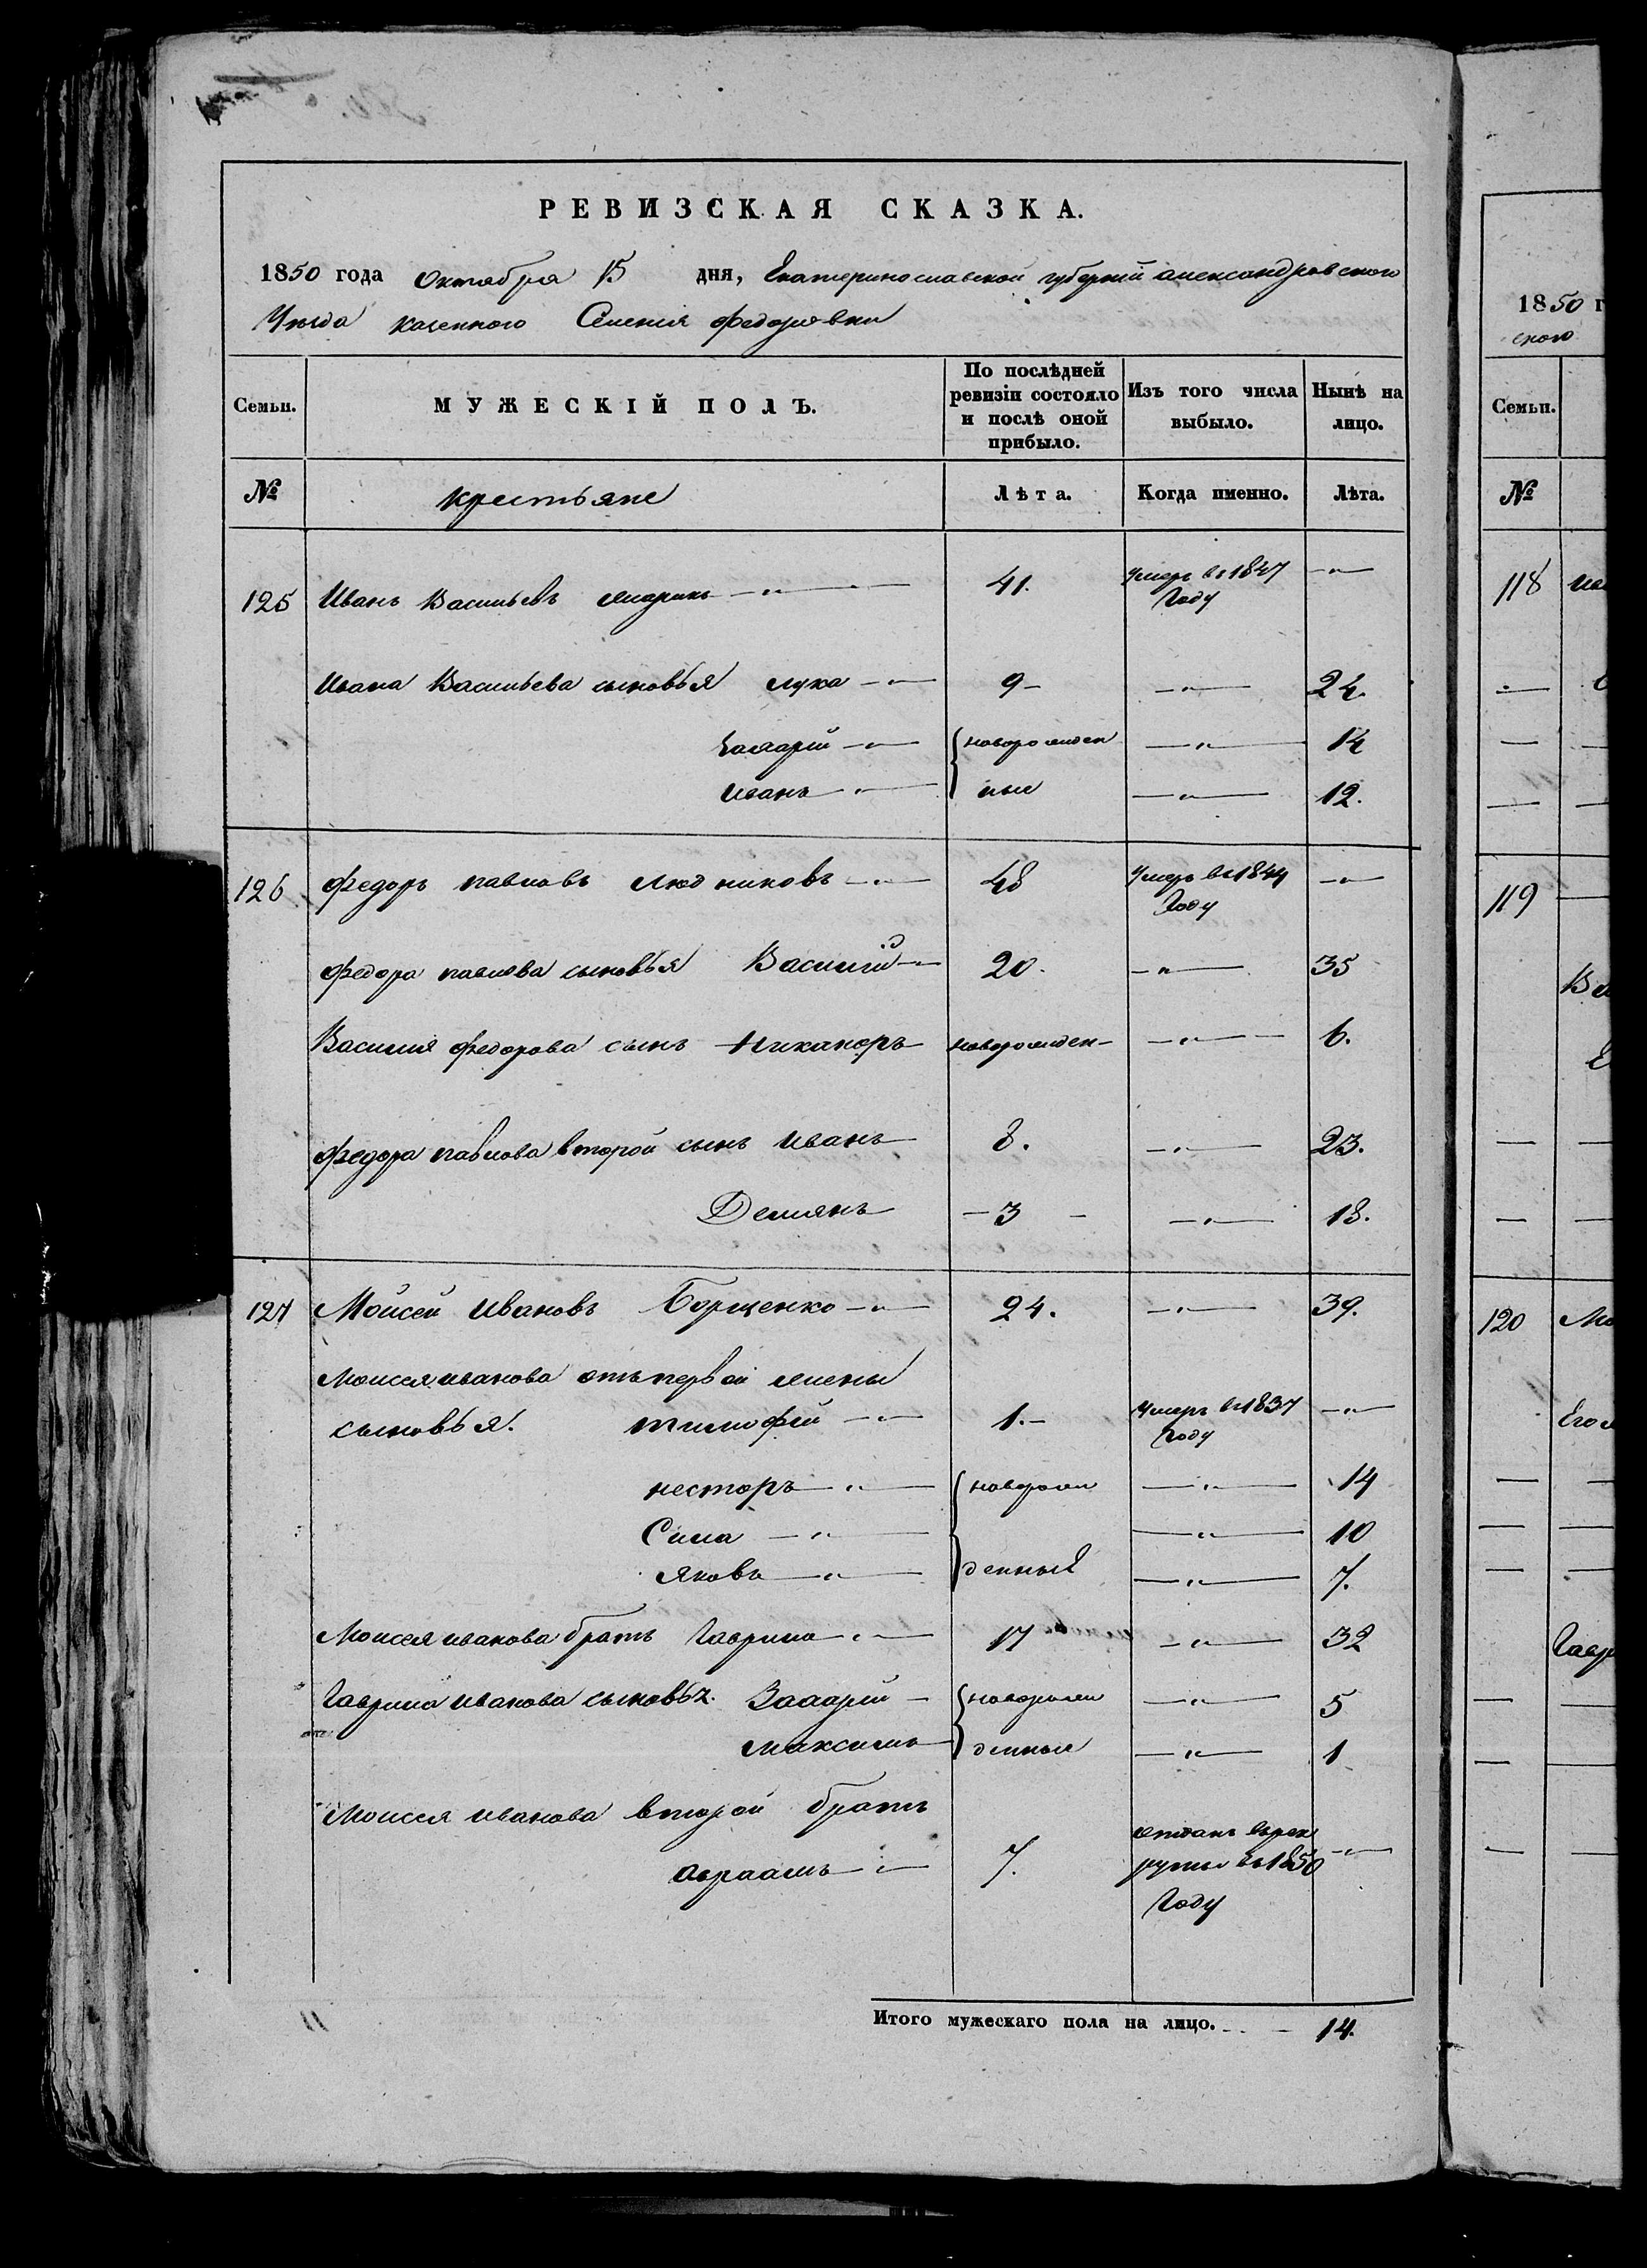 РЕВИЗСКАЯ СКАЗКА.
1850 года Октября 15 дня, Екатеринославской губерніи александровского
Уѣзда казенного Селенія федоровки
Семьи. МУЖЕСКІЙ ПОЛЪ. По послѣдней ревизіи состояло и послѣ оной прибыло. Изъ того числа выбыло. Нынѣ на лицо.
№ крестьяне Лѣта. Когда именно. Лѣта.
125 Иванъ Васильевъ 41. умеръ въ 1847 Году
Ивана Васильева сыновья лука 9 24.
Захарій новорожден 14
Иванъ ные 12.
126 Федоръ павловъ Людниковъ 48 Умеръ въ 1844 Году
Федора павлова сыновья Василій 20. 35
Василия федорова сынъ Никаноръ новорожден 6.
Федора павлова второй сынъ Иванъ 8. 23.
Демянъ 3 18.
127 Моисей Ивановъ Борщенко 24. 39.
Моисея иванова отъ первой жены
сыновья. тимофей 1. умеръ въ 1837 году
несторъ новорож 14
Сила 10
яковъ денные 7.
Моисея иванова братъ Гаврило 17 32
Гаврила иванова сыновья. Захарій новорож 5
максимъ денные 1
Моисея иванова второй братъ
авраамъ 7. отданъ въ рек
руты въ 1850
Году
Итого мужескаго пола на лицо. 14.
1850 г
ского
Семьи.
№
118
119
120 Мо
Его
Гавр